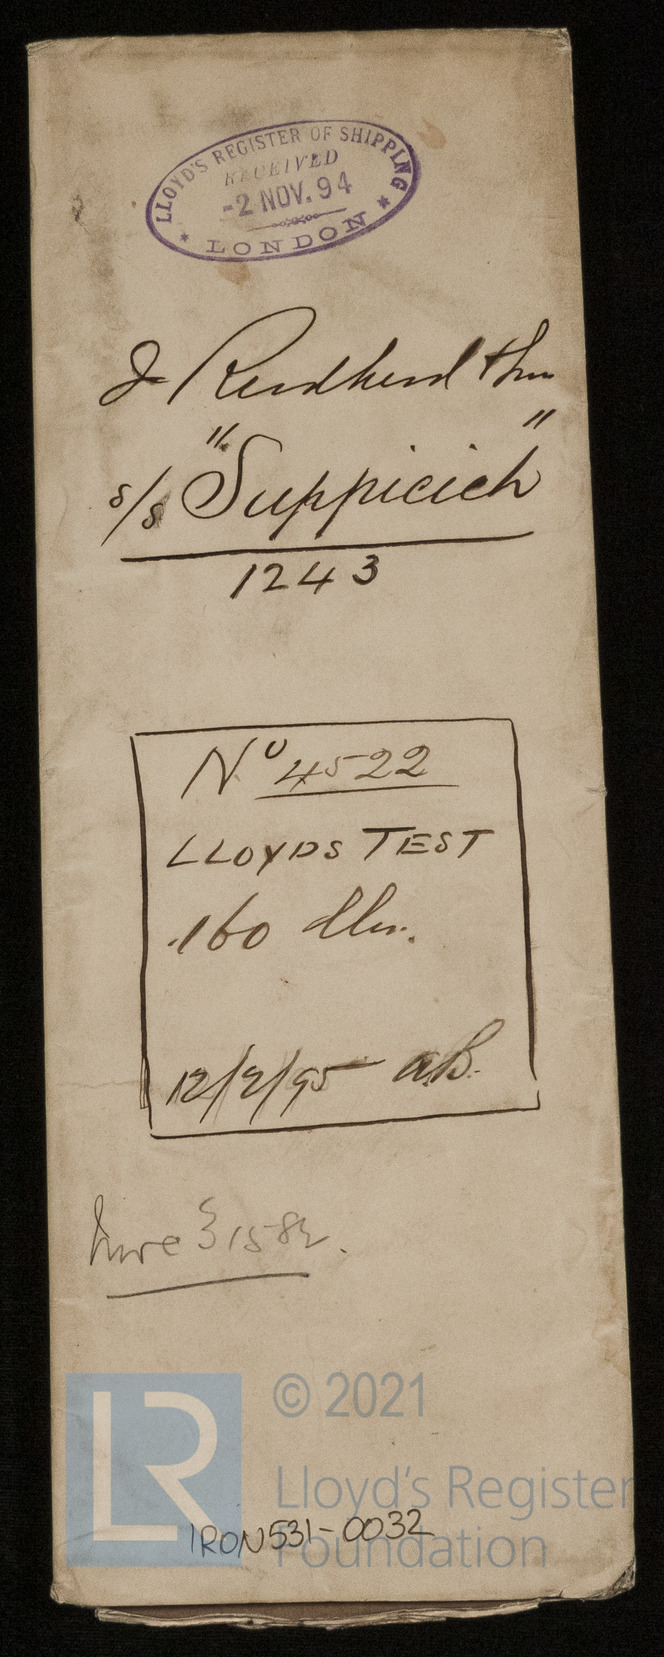 LLOYD'S REGISTER OF SHIPPING
RECEIVED
-2 NOV. 94
LONDON
J Readhead & Sons
s/s "Suppicich"
1243
No 4522
LLOYDS TEST
160 lbs.
12/2/95 AB.
31582.
LR
© 2021
Lloyd's Register
Foundation
IRON531-0032